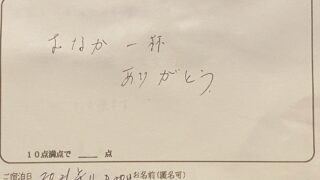 おなか一杯
ありがとう
10点満点で ＿＿ 点
ご宿泊日 お名前(匿名可)